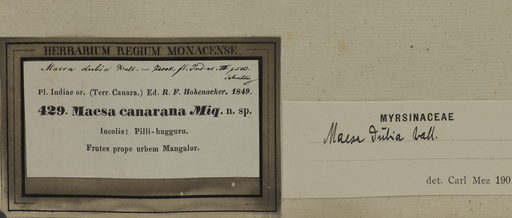 HERBARIUM REGIUM MONACENSE.
Maesa dubia Wall.
Pl. Indiae or. (Terr. Canara.) Ed. R. F. Hohenacker. 1849.
429. Maesa canarana Miq. n. sp.
Incolis: Pilli-hugguru.
Frutex prope urbem Mangalor.
MYRSINACEAE
Maesa dubia Wall.
det. Carl Mez 190